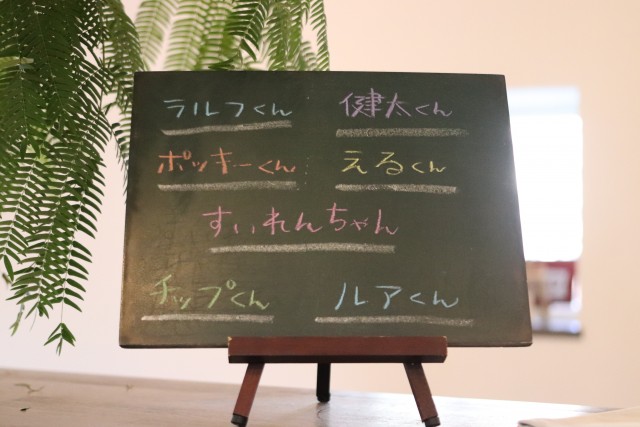 ラルフくん 健太くん
ポッキーくん えるくん
すいれんちゃん
チップくん ルアくん